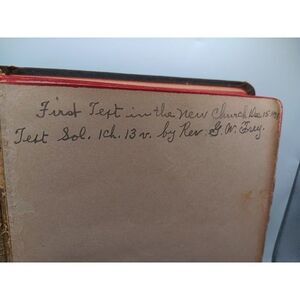 First Text in the New Church Dec 15
Text Sol. 1ch. 13 v. by Rev. G. W. Frey.